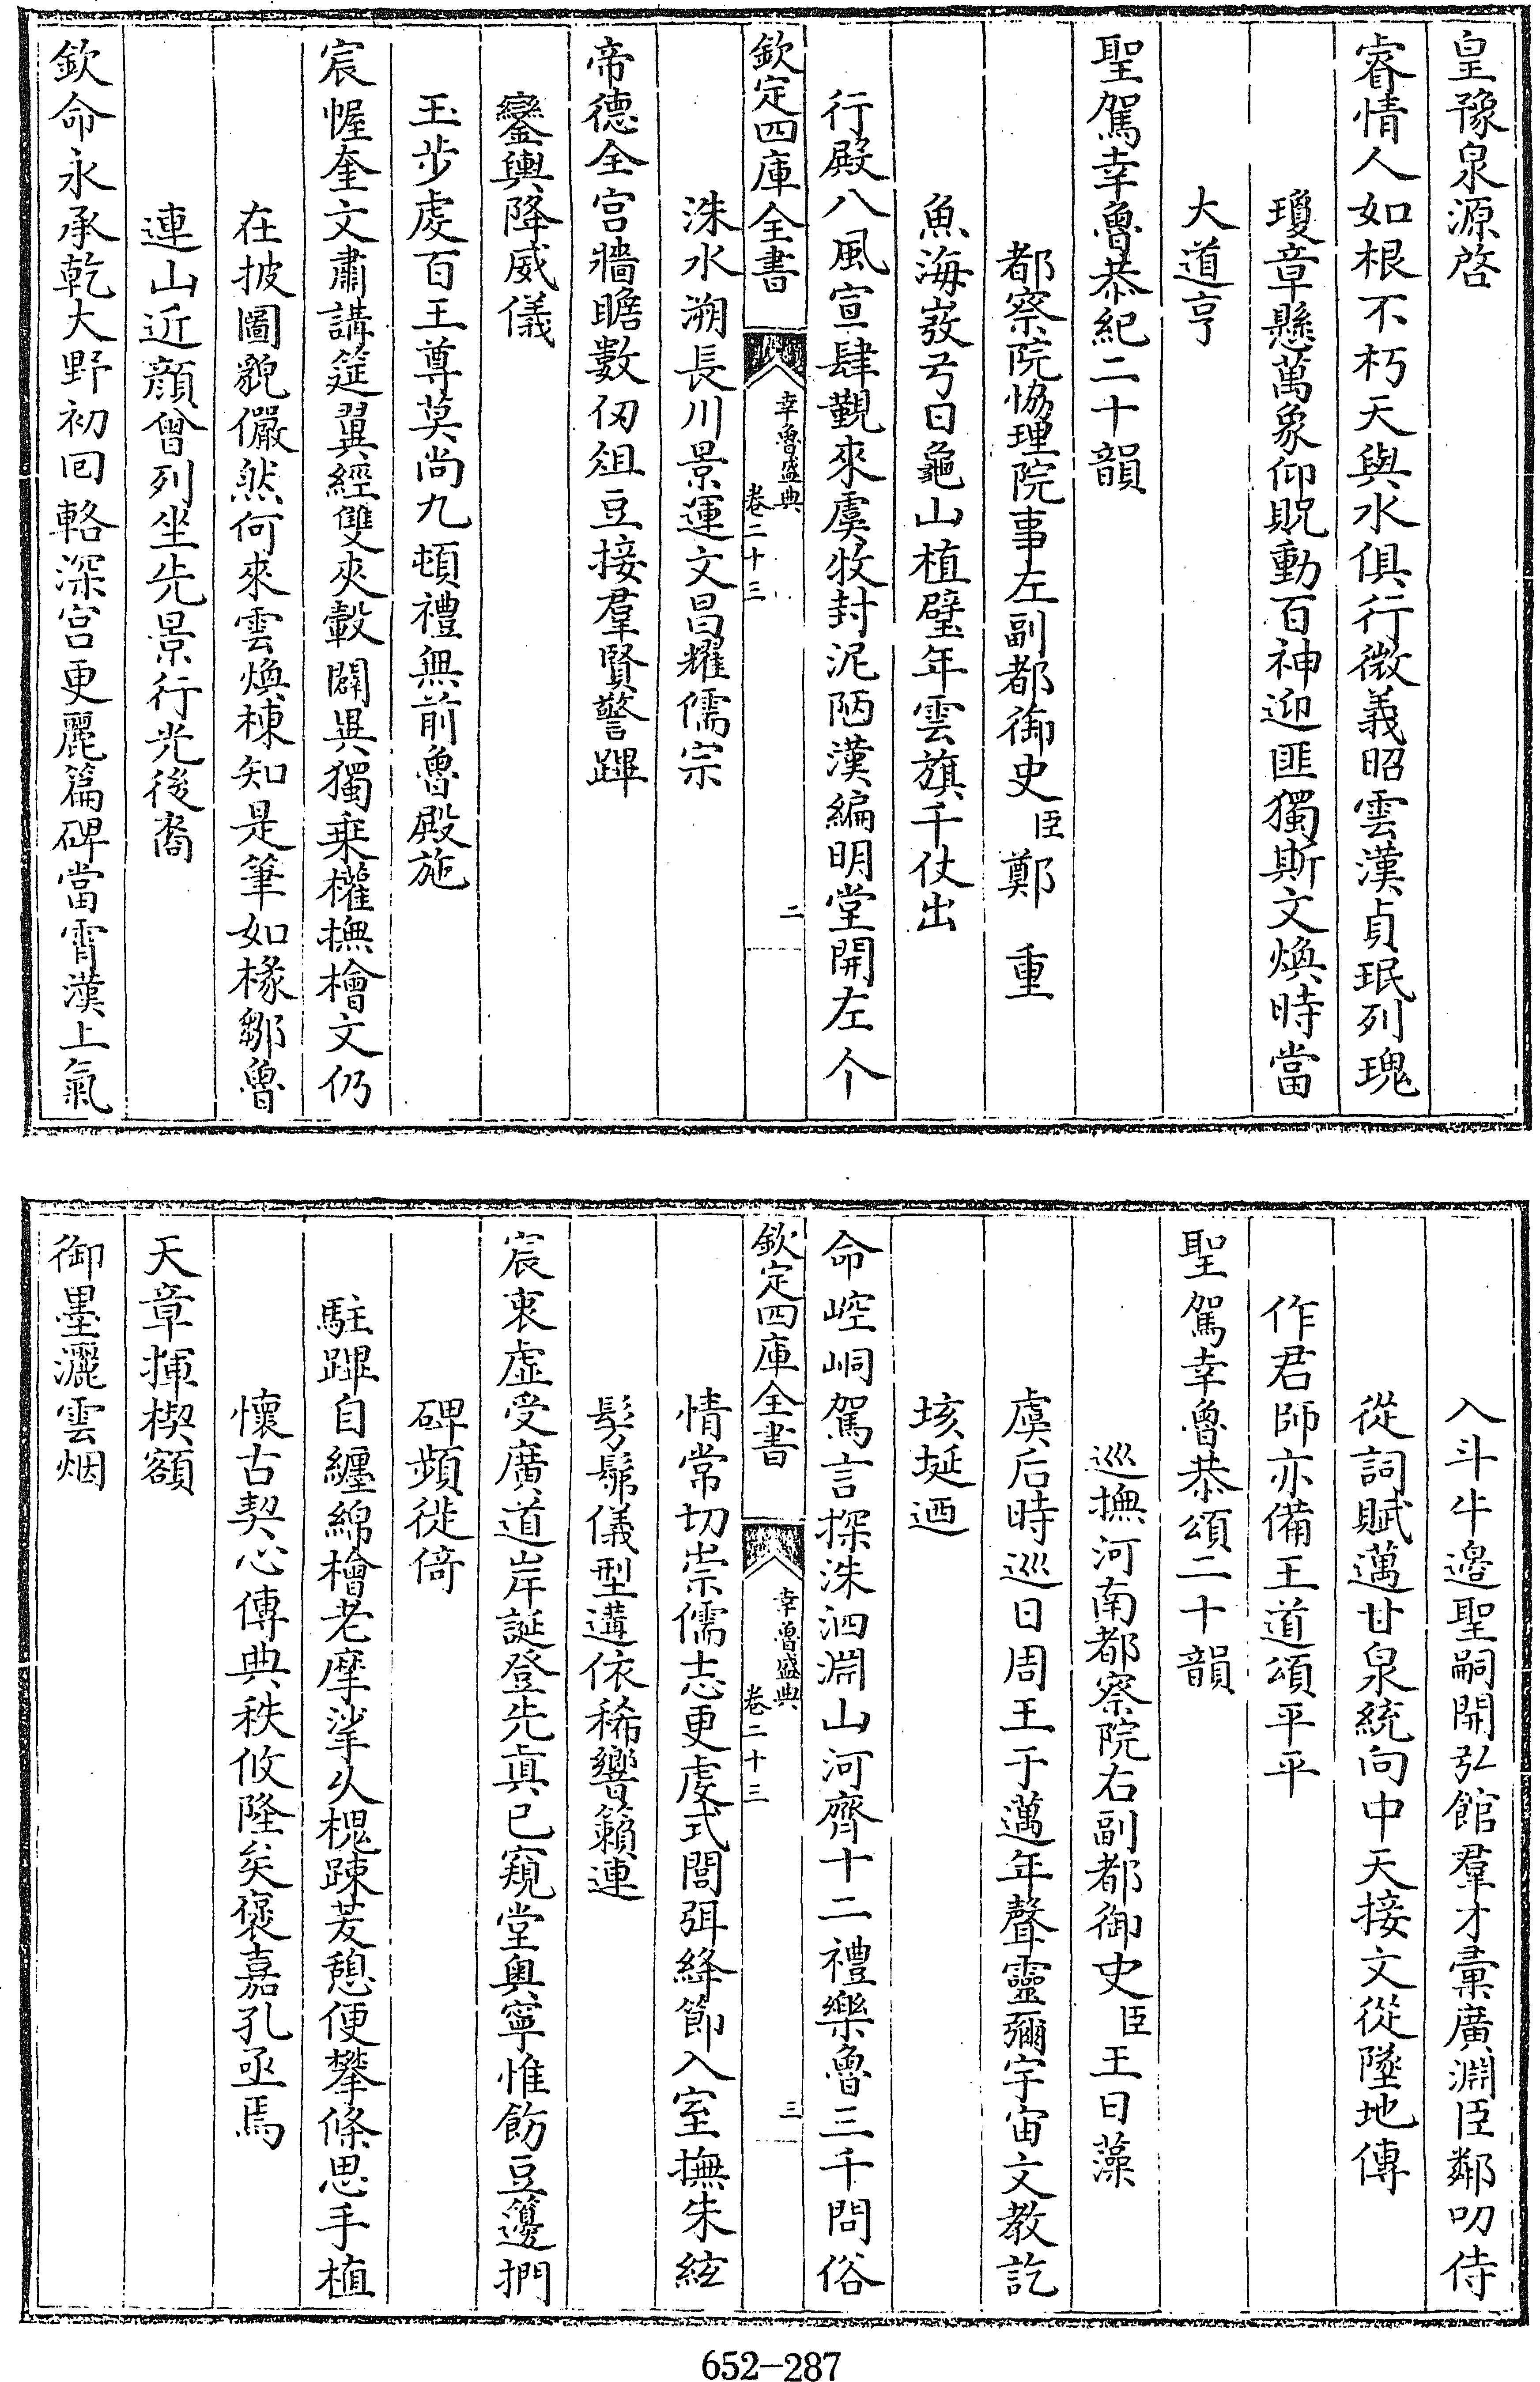 皇豫泉源啓
睿情人如根不朽天與水俱行微義昭雲漢貞珉列瑰
瓊章懸萬象仰貺動百神迎匪獨斯文煥時當
大道亨
聖駕幸魯恭紀二十韻
都察院協理院事左副都御史臣鄭　重
魚海㢸弓日龜山植璧年雲旗千仗出
行殿八風宣肆覲來虞牧封泥陋漢編明堂開左个
欽定四庫全書
幸魯盛典
卷二十三
二
洙水溯長川景運文昌耀儒宗
帝德全宮牆瞻數仞俎豆接羣賢警蹕
鑾輿降威儀
玉步處百王尊莫尚九頓禮無前魯殿施
宸幄奎文肅講筵翼經雙夾轂闢異獨乗權撫檜文仍
在披圖貌儼然何來雲煥棟知是筆如椽鄒魯
連山近顔曾列坐先景行光後裔
欽命永承乾大野初回輅深宮更麗篇碑當霄漢上氣
入斗牛邉聖嗣開弘館羣才彚廣淵臣鄰叨侍
從詞賦邁甘泉統向中天接文從墜地傳
作君師亦備王道頌平平
聖駕幸魯恭頌二十韻
巡撫河南都察院右副都御史臣王日藻
虞后時巡日周王于邁年聲靈彌宇宙文教訖
垓埏迺
命崆峒駕言探洙泗淵山河齊十二禮樂魯三千問俗
欽定四庫全書
幸魯盛典
卷二十三
三
情常切崇儒志更䖍式閭弭絳節入室撫朱絃
髣髴儀型遘依稀響籟連
宸衷虛受廣道岸誕登先眞已窺堂奥寧惟飭豆籩捫
碑頻徙倚
駐蹕自纏綿檜老摩挲久槐踈茇憩便攀條思手植
懷古契心傳典秩攸隆矣褒嘉孔亟焉
天章揮楔額
御墨灑雲烟
652-287